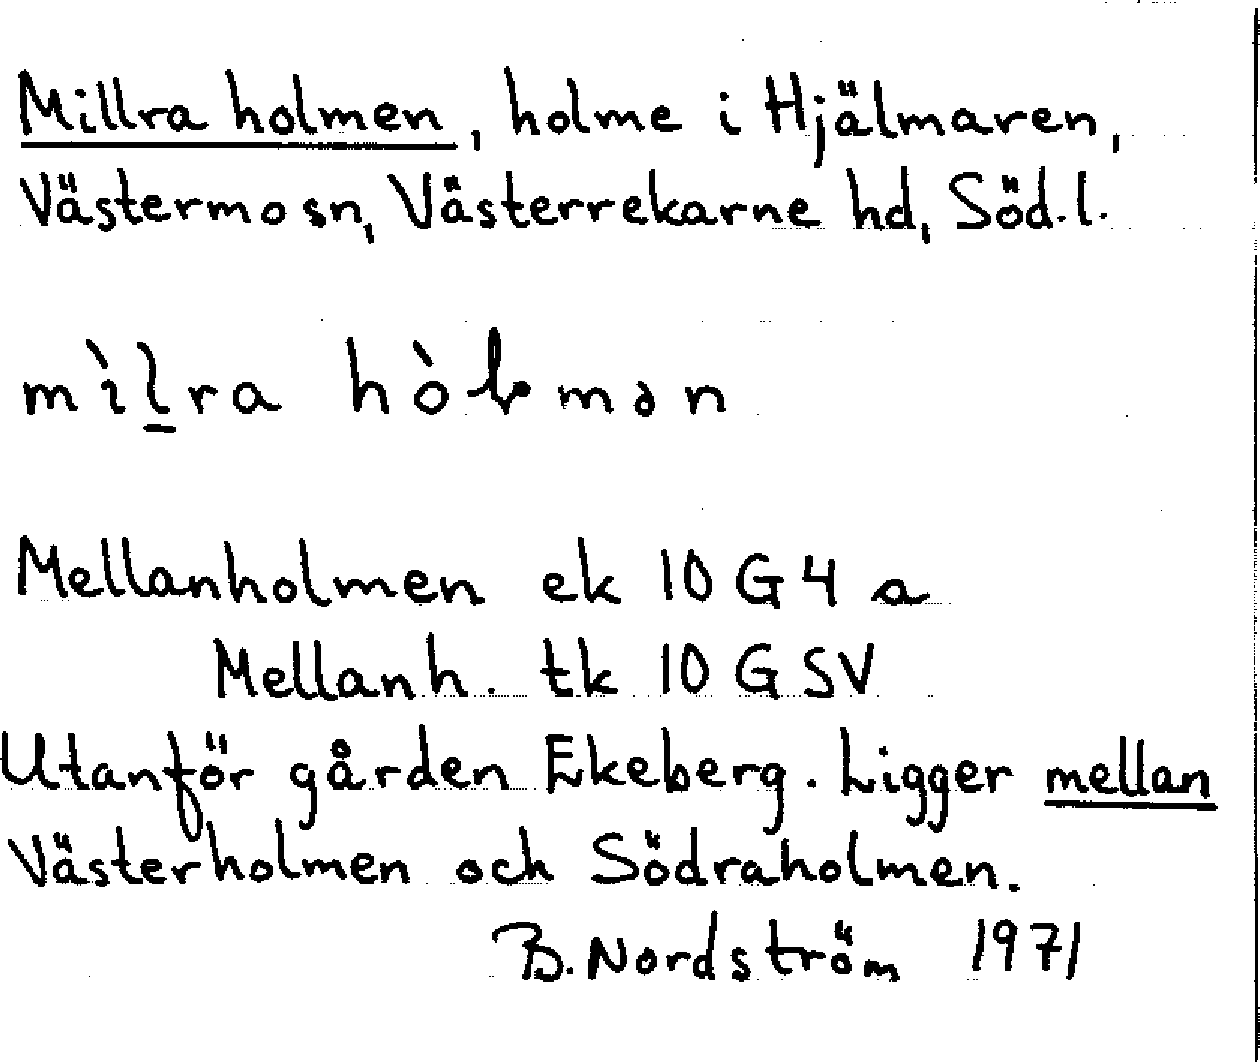 Millra holmen, holme i Hjälmaren,
Västermo sn, Västerrekarne hd, Söd.l.
mìl̠ra hòɫmən
Mellanholmen ek 10 G 4 a
Mellanh. tk 10 G SV
Utanför gården Ekeberg. Ligger mellan
Västerholmen och Södraholmen.
B. Nordström 1971